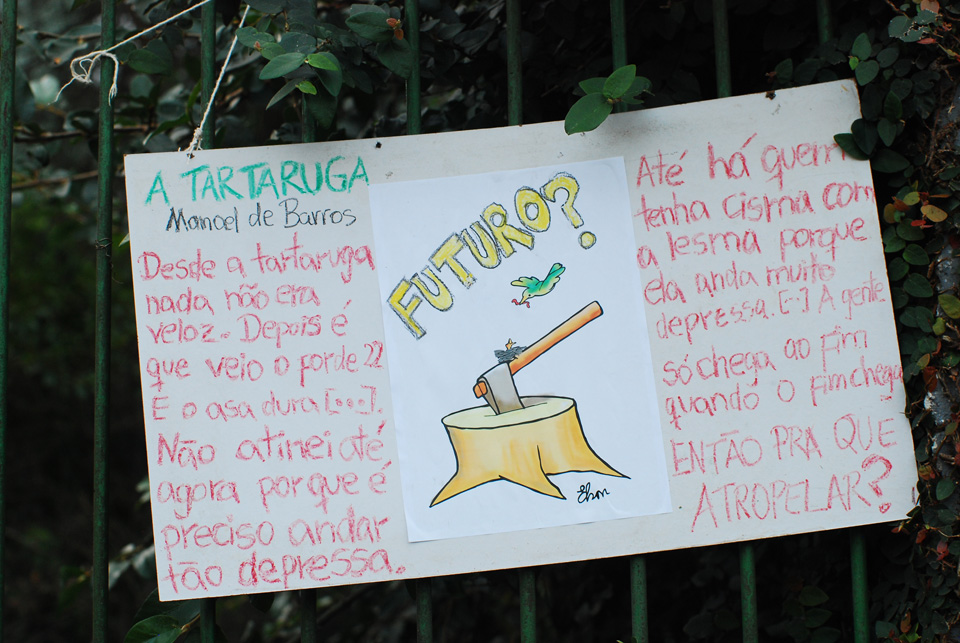 A TARTARUGA
Manoel de Barros
Desde a tartaruga
nada não era
veloz. Depois é
que veio o porde 22
E o asa dura [...].
Não atinei até
agora por que é
preciso andar
tão depressa.
FUTURO?
Até há quem
tenha cisma com
a lesma porque
ela anda muito
depressa. [...] A gente
só chega ao fim
quando o fim chega
ENTÃO PRA QUE
ATROPELAR?